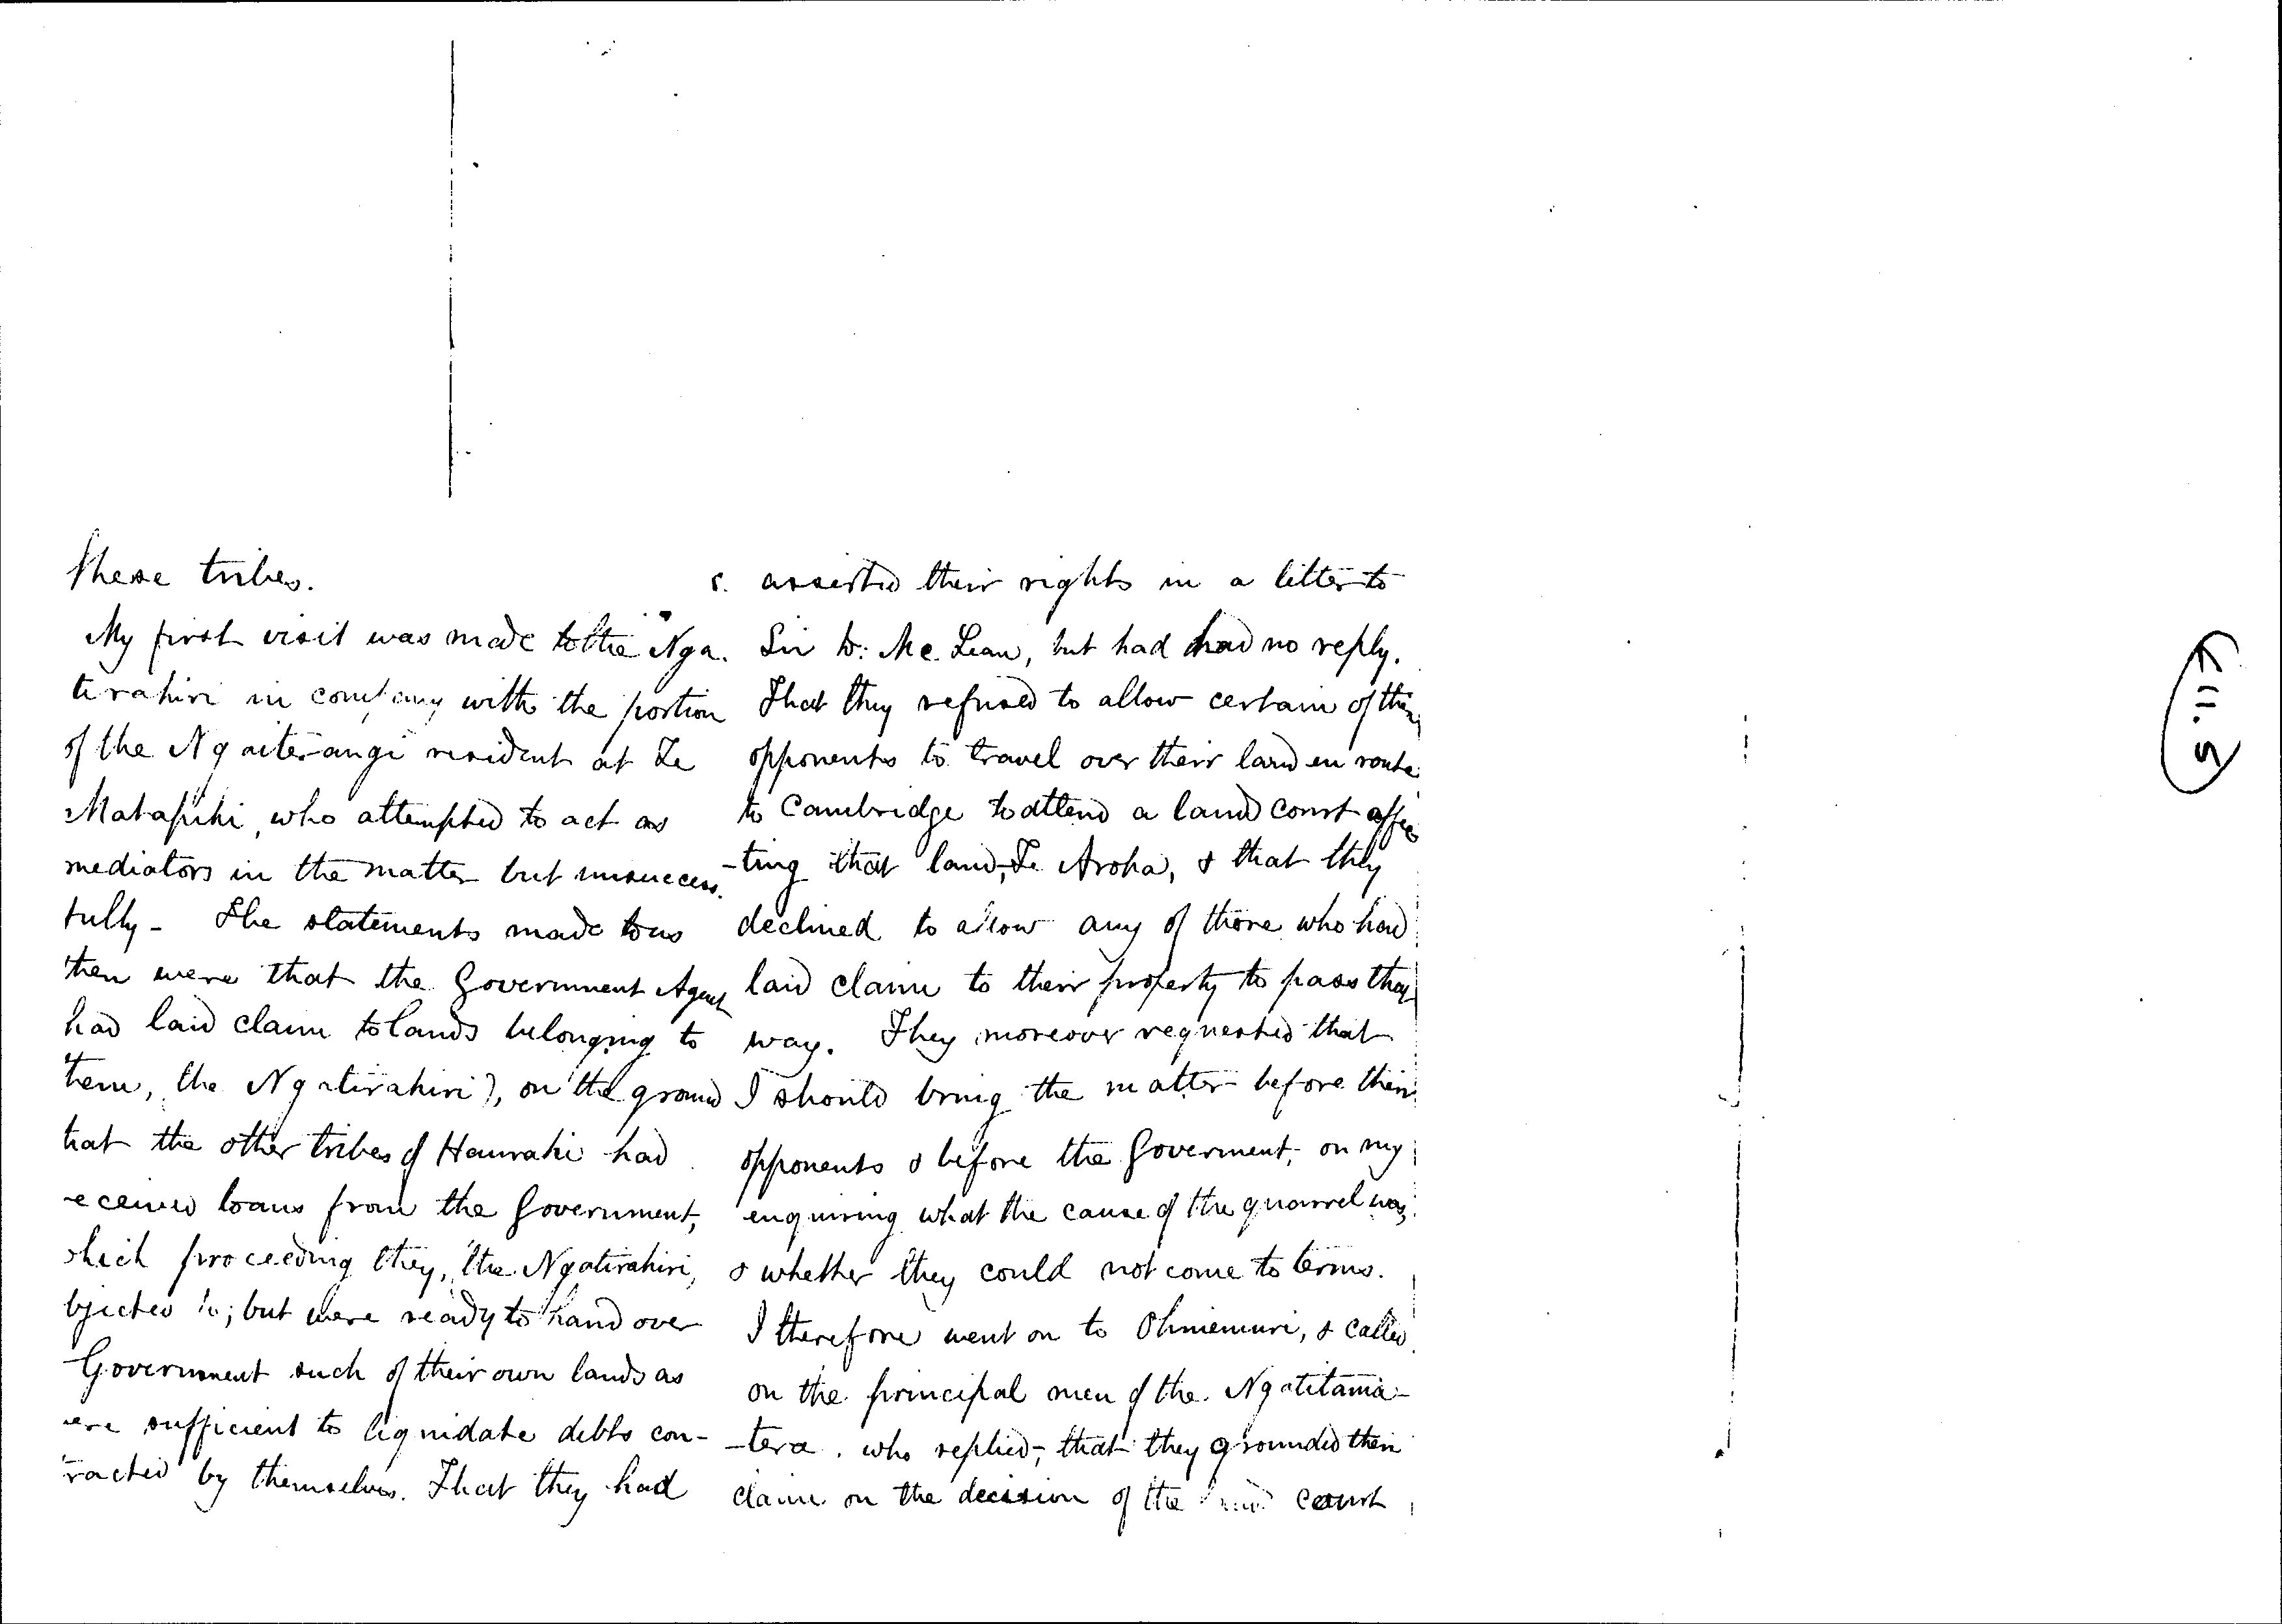 these tribes.
My first visit was made to the Nga-
tirahiri in company with the portion
of the Ngaiterangi resident at Te
Matapihi, who attempted to act as
mediators in the matter but unsuccess-
fully - The statements made to us
then were that the Government Agent
had laid claim to lands belonging to
them, the Ngatirahiri), on the ground
that the other tribes of Hauraki had
received loans from the Government,
which proceeding they, the Ngatirahiri,
objected to; but were ready to hand over
Government such of their own lands as
were sufficient to liquidate debts con-
tracted by themselves. That they had
asserted their rights in a letter to
Sir D: Mc.Lean, but had had no reply.
That they refused to allow certain of their
opponents to travel over their land en route
to Cambridge to attend a land court affec
-ting that land, Te Aroha, & that they
declined to allow any of those who had
laid claim to their property to pass that
way. They moreover requested that
I should bring the matter before their
opponents & before the Goverment; on my
enquiring what the cause of the quarrel was,
& whether they could not come to terms.
I therefore went on to Ohinemuri, & called
on the principal men of the Ngatitama-
-tera, who replied, that they grounded their
claim on the decision of the land court